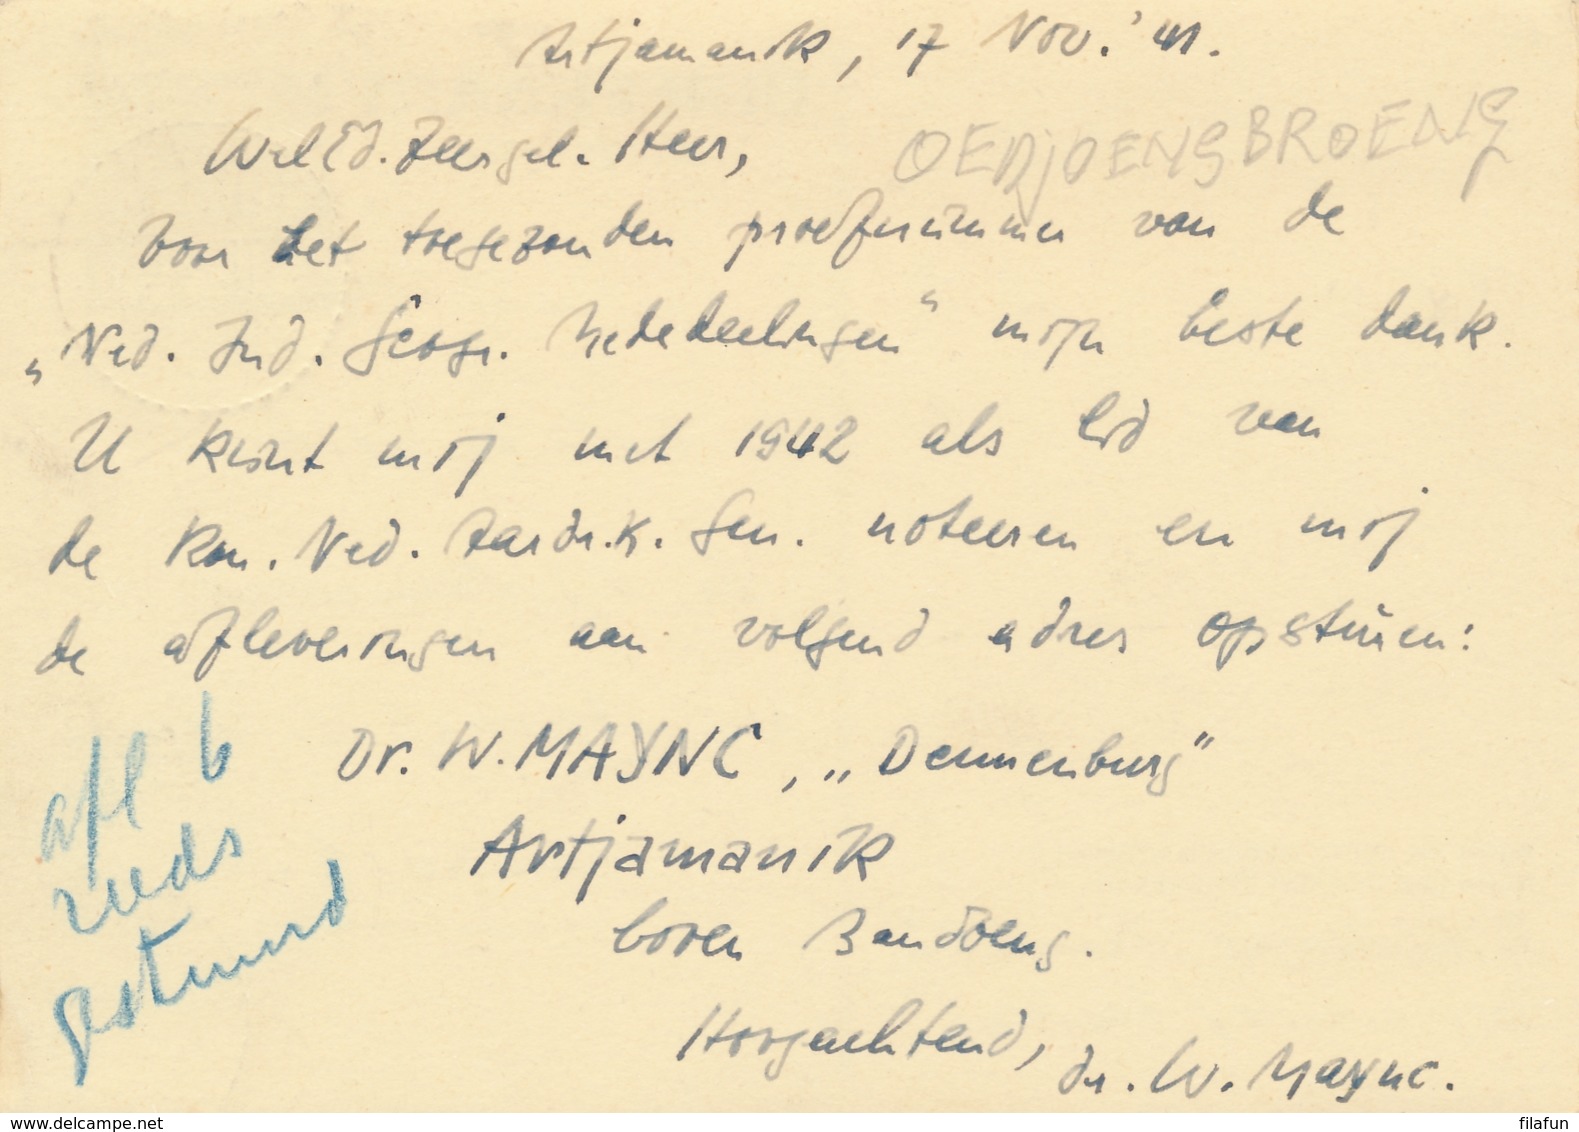 Artjamanik, 17 Nov. '41.
WelEd. Zeergel. Heer,
OEDJOENGBROENG
Voor het toegezonden proefnummer van de
„Ned. Ind. Geogr. Mededeelingen" mijn beste dank.
U kunt mij met 1942 als lid van
de Kon. Ned. Aardr.k. Gen. noteeren en mij
de afleveringen aan volgend adres opsturen:
Dr. W. MAYNC, „Dennenburg"
Artjamanik
boven Bandoeng.
Hoogachtend, dr. W. Maync.
afl 6
reeds
gestuurd
www.delcampe.net
filafun